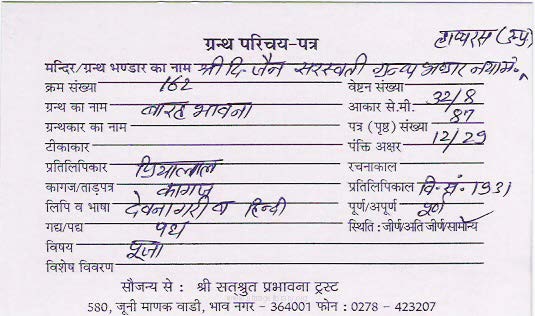 ग्रन्थ परिचय-पत्र हाथरस (उ.प्र.)
मन्दिर/ग्रन्थ भण्डार का नाम श्री दि. जैन सरस्वती ग्रन्थ भण्डार
क्रम संख्या 162 वेष्टन संख्या
ग्रन्थ का नाम बारह भावना आकार से.मी. 32/8
ग्रन्थकार का नाम पत्र (पृष्ठ) संख्या 87
टीकाकार पंक्ति अक्षर 12/29
प्रतिलिपिकार प्रियालाल रचनाकाल
कागज/ताड़पत्र कागज प्रतिलिपिकाल वि.सं. 1931
लिपि व भाषा देवनागरी व हिन्दी पूर्ण/अपूर्ण पूर्ण
गद्य/पद्य पद्य स्थिति : जीर्ण/अति जीर्ण/सामान्य
विषय पूजा
विशेष विवरण
सौजन्य से : श्री सतश्रुत प्रभावना ट्रस्ट
580, जूनी माणक वाडी, भाव नगर - 364001 फोन : 0278 - 423207